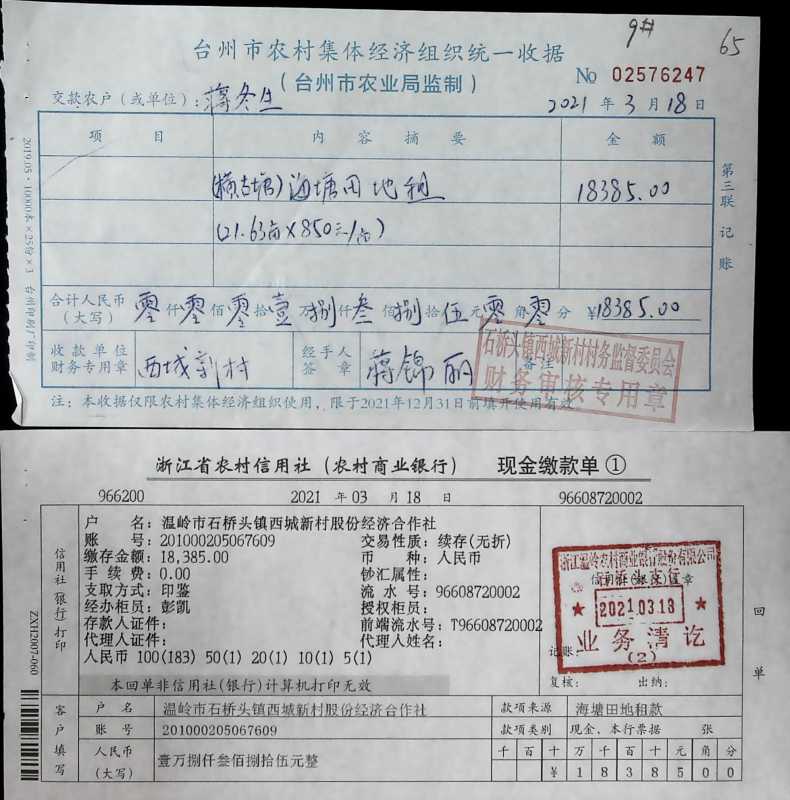 9# 65
台州市农村集体经济组织统一收据
(台州市农业局监制)
No 02576247
交款农户(或单位):蒋冬生 2021 年 3 月 18 日
项 目 内 容 摘 要 金 额
海塘田地租 18385.00
(21.63亩×850元/亩)
合计人民币(大写) 零仟零佰零拾壹万捌仟叁佰捌拾伍元零角零分 ¥18385.00
收款单位财务专用章 西城新村 经手人签章 蒋锦丽 备注
石桥头镇西城新村村务监督委员会
财务审核专用章
注:本收据仅限农村集体经济组织使用,限于2021年12月31日前填开使用有效
第三联 记账
2019.05·10000本×25份×3 台州印刷厂印制
浙江省农村信用社(农村商业银行) 现金缴款单①
966200 2021 年 03 月 18 日 96608720002
户 名:温岭市石桥头镇西城新村股份经济合作社
账 号:201000205067609 交易性质:续存(无折)
缴存金额:18,385.00 币 种:人民币
手 续 费:0.00 钞汇属性:
支取方式:印鉴 流 水 号:96608720002
经办柜员:彭凯 授权柜员:
存款人证件: 前端流水号:T96608720002
代理人证件: 代理人姓名:
人民币 100(183) 50(1) 20(1) 10(1) 5(1)
本回单非信用社(银行)计算机打印无效
信用社(银行)打印
ZXH2007-060
浙江温岭农村商业银行股份有限公司
信用社(银行)盖章
2021.03.18
业务清讫
(2)
记账:
复核: 出纳:
回单
客户填写
户 名 温岭市石桥头镇西城新村股份经济合作社 款项来源 海塘田地租款
账 号 201000205067609 款项类别 现金、本行票据 张
人民币(大写) 壹万捌仟叁佰捌拾伍元整 千 百 十 万 千 百 十 元 角 分
¥ 1 8 3 8 5 0 0